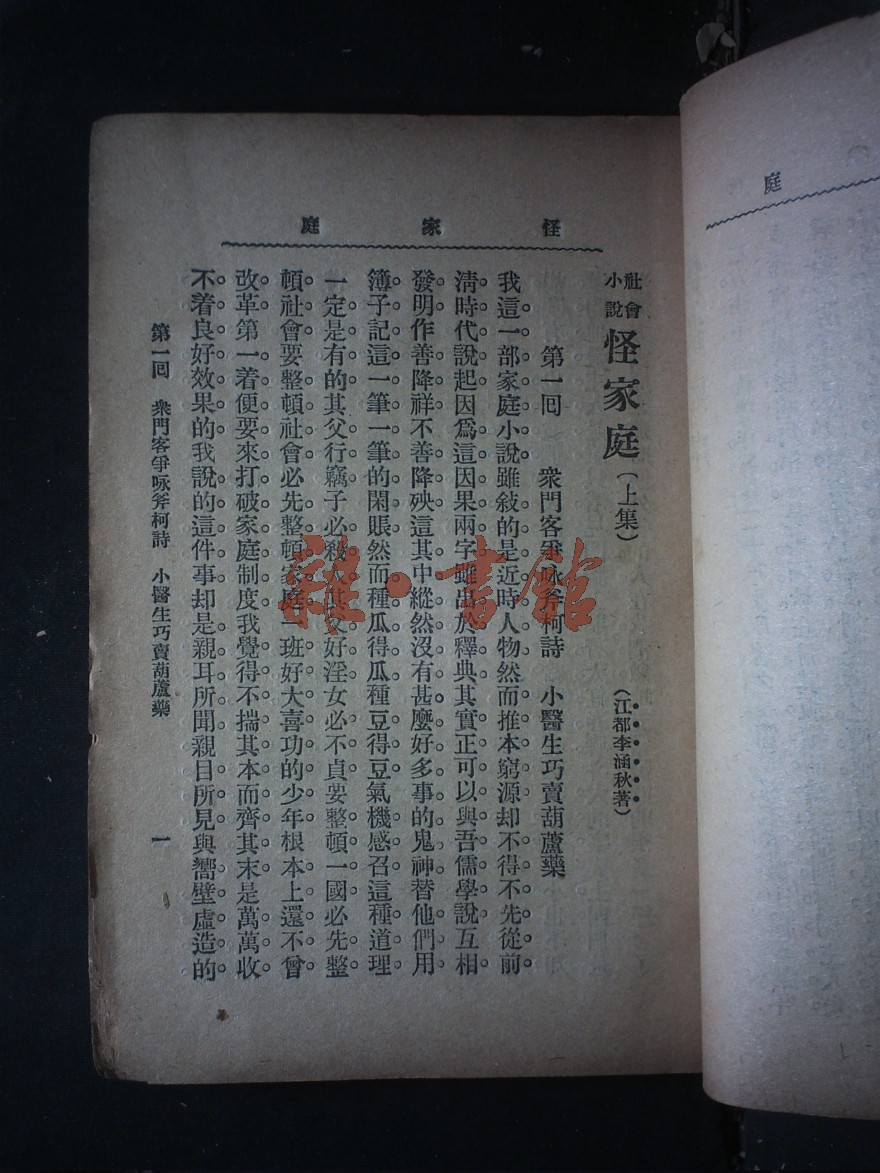 怪家庭
社會小說 怪家庭（上集） （江都李涵秋著）
第一回 衆門客爭咏斧柯詩 小醫生巧賣葫蘆藥
我這一部家庭小說雖敍的是近時人物然而推本窮源却不得不先從前
淸時代說起因爲這因果兩字雖出於釋典其實正可以與吾儒學說互相
發明作善降祥不善降殃這其中縱然沒有甚麼好多事的鬼神替他們用
簿子記這一筆一筆的閑賬然而種瓜得瓜種豆得豆氣機感召這種道理
一定是有的其父行竊子必殺人其父好淫女必不貞要整頓一國必先整
頓社會要整頓社會必先整頓家庭一班好大喜功的少年根本上還不曾
改革第一着便要來打破家庭制度我覺得不揣其本而齊其末是萬萬收
不着良好效果的我說的這件事却是親耳所聞親目所見與嚮壁虛造的
第一回 衆門客爭咏斧柯詩 小醫生巧賣葫蘆藥 一
庭
雜·書館